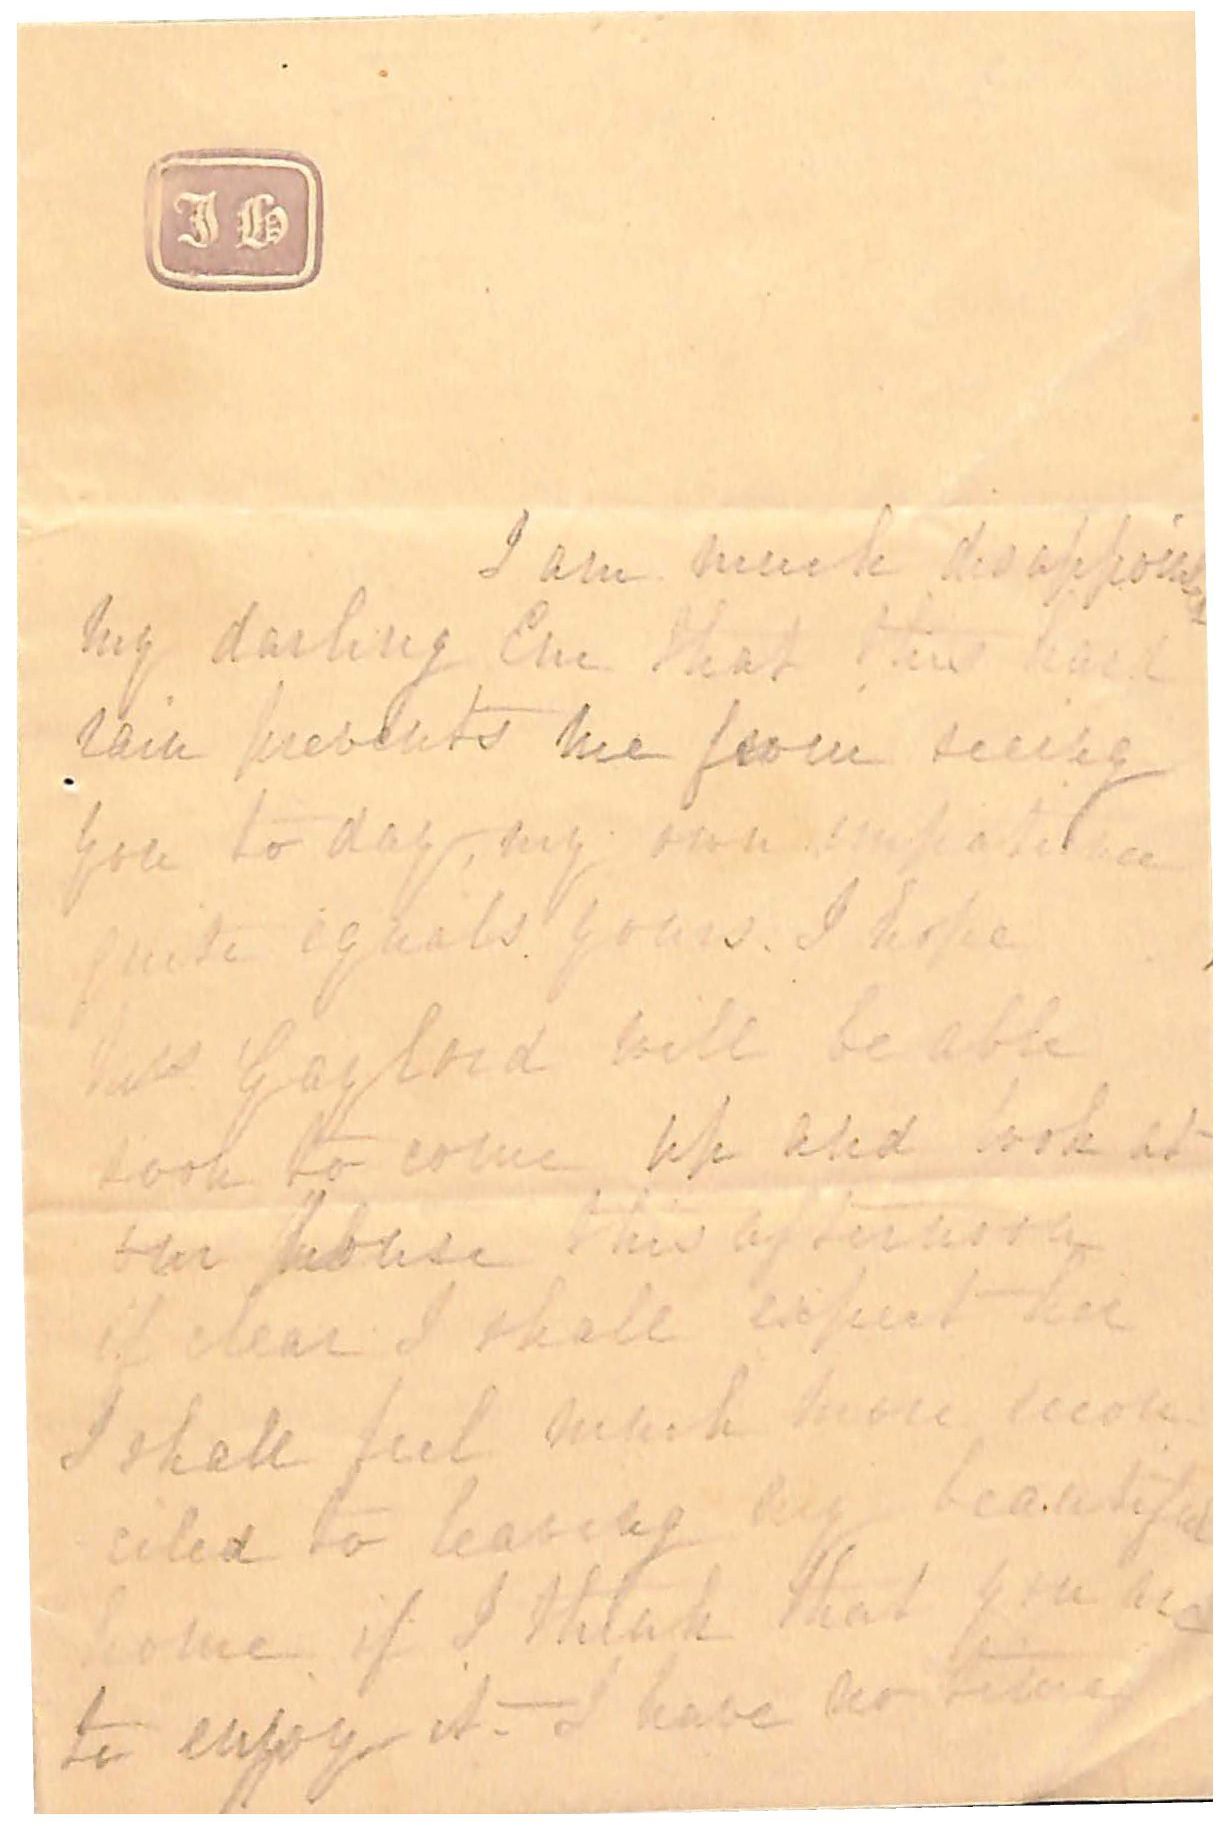 I am much disappointed
my darling Em that this hard
rain prevents me from seeing
you to day, my own impatience
quite equals yours. I hope
Mrs Gaylord will be able
soon to come up and look at
our house this afternoon
if clear I shall expect her
I shall feel much more recon
ciled to leaving my beautiful
home if I think that you are
to enjoy it - I have no time